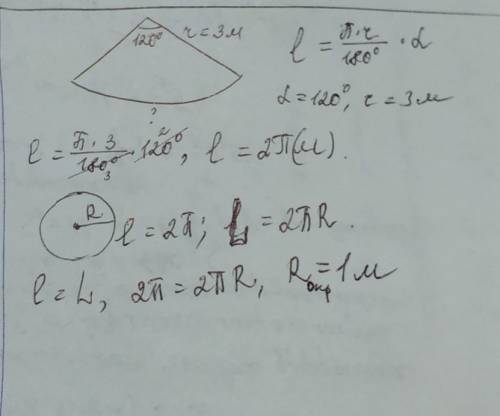 120° r = 3м
l = П·r/180° · α
α = 120°, r = 3м
?
l = П·3/180°3 · 120°2, l = 2П(м).
R
l = 2П; L = 2ПR.
l = L, 2П = 2ПR, Rокр = 1м